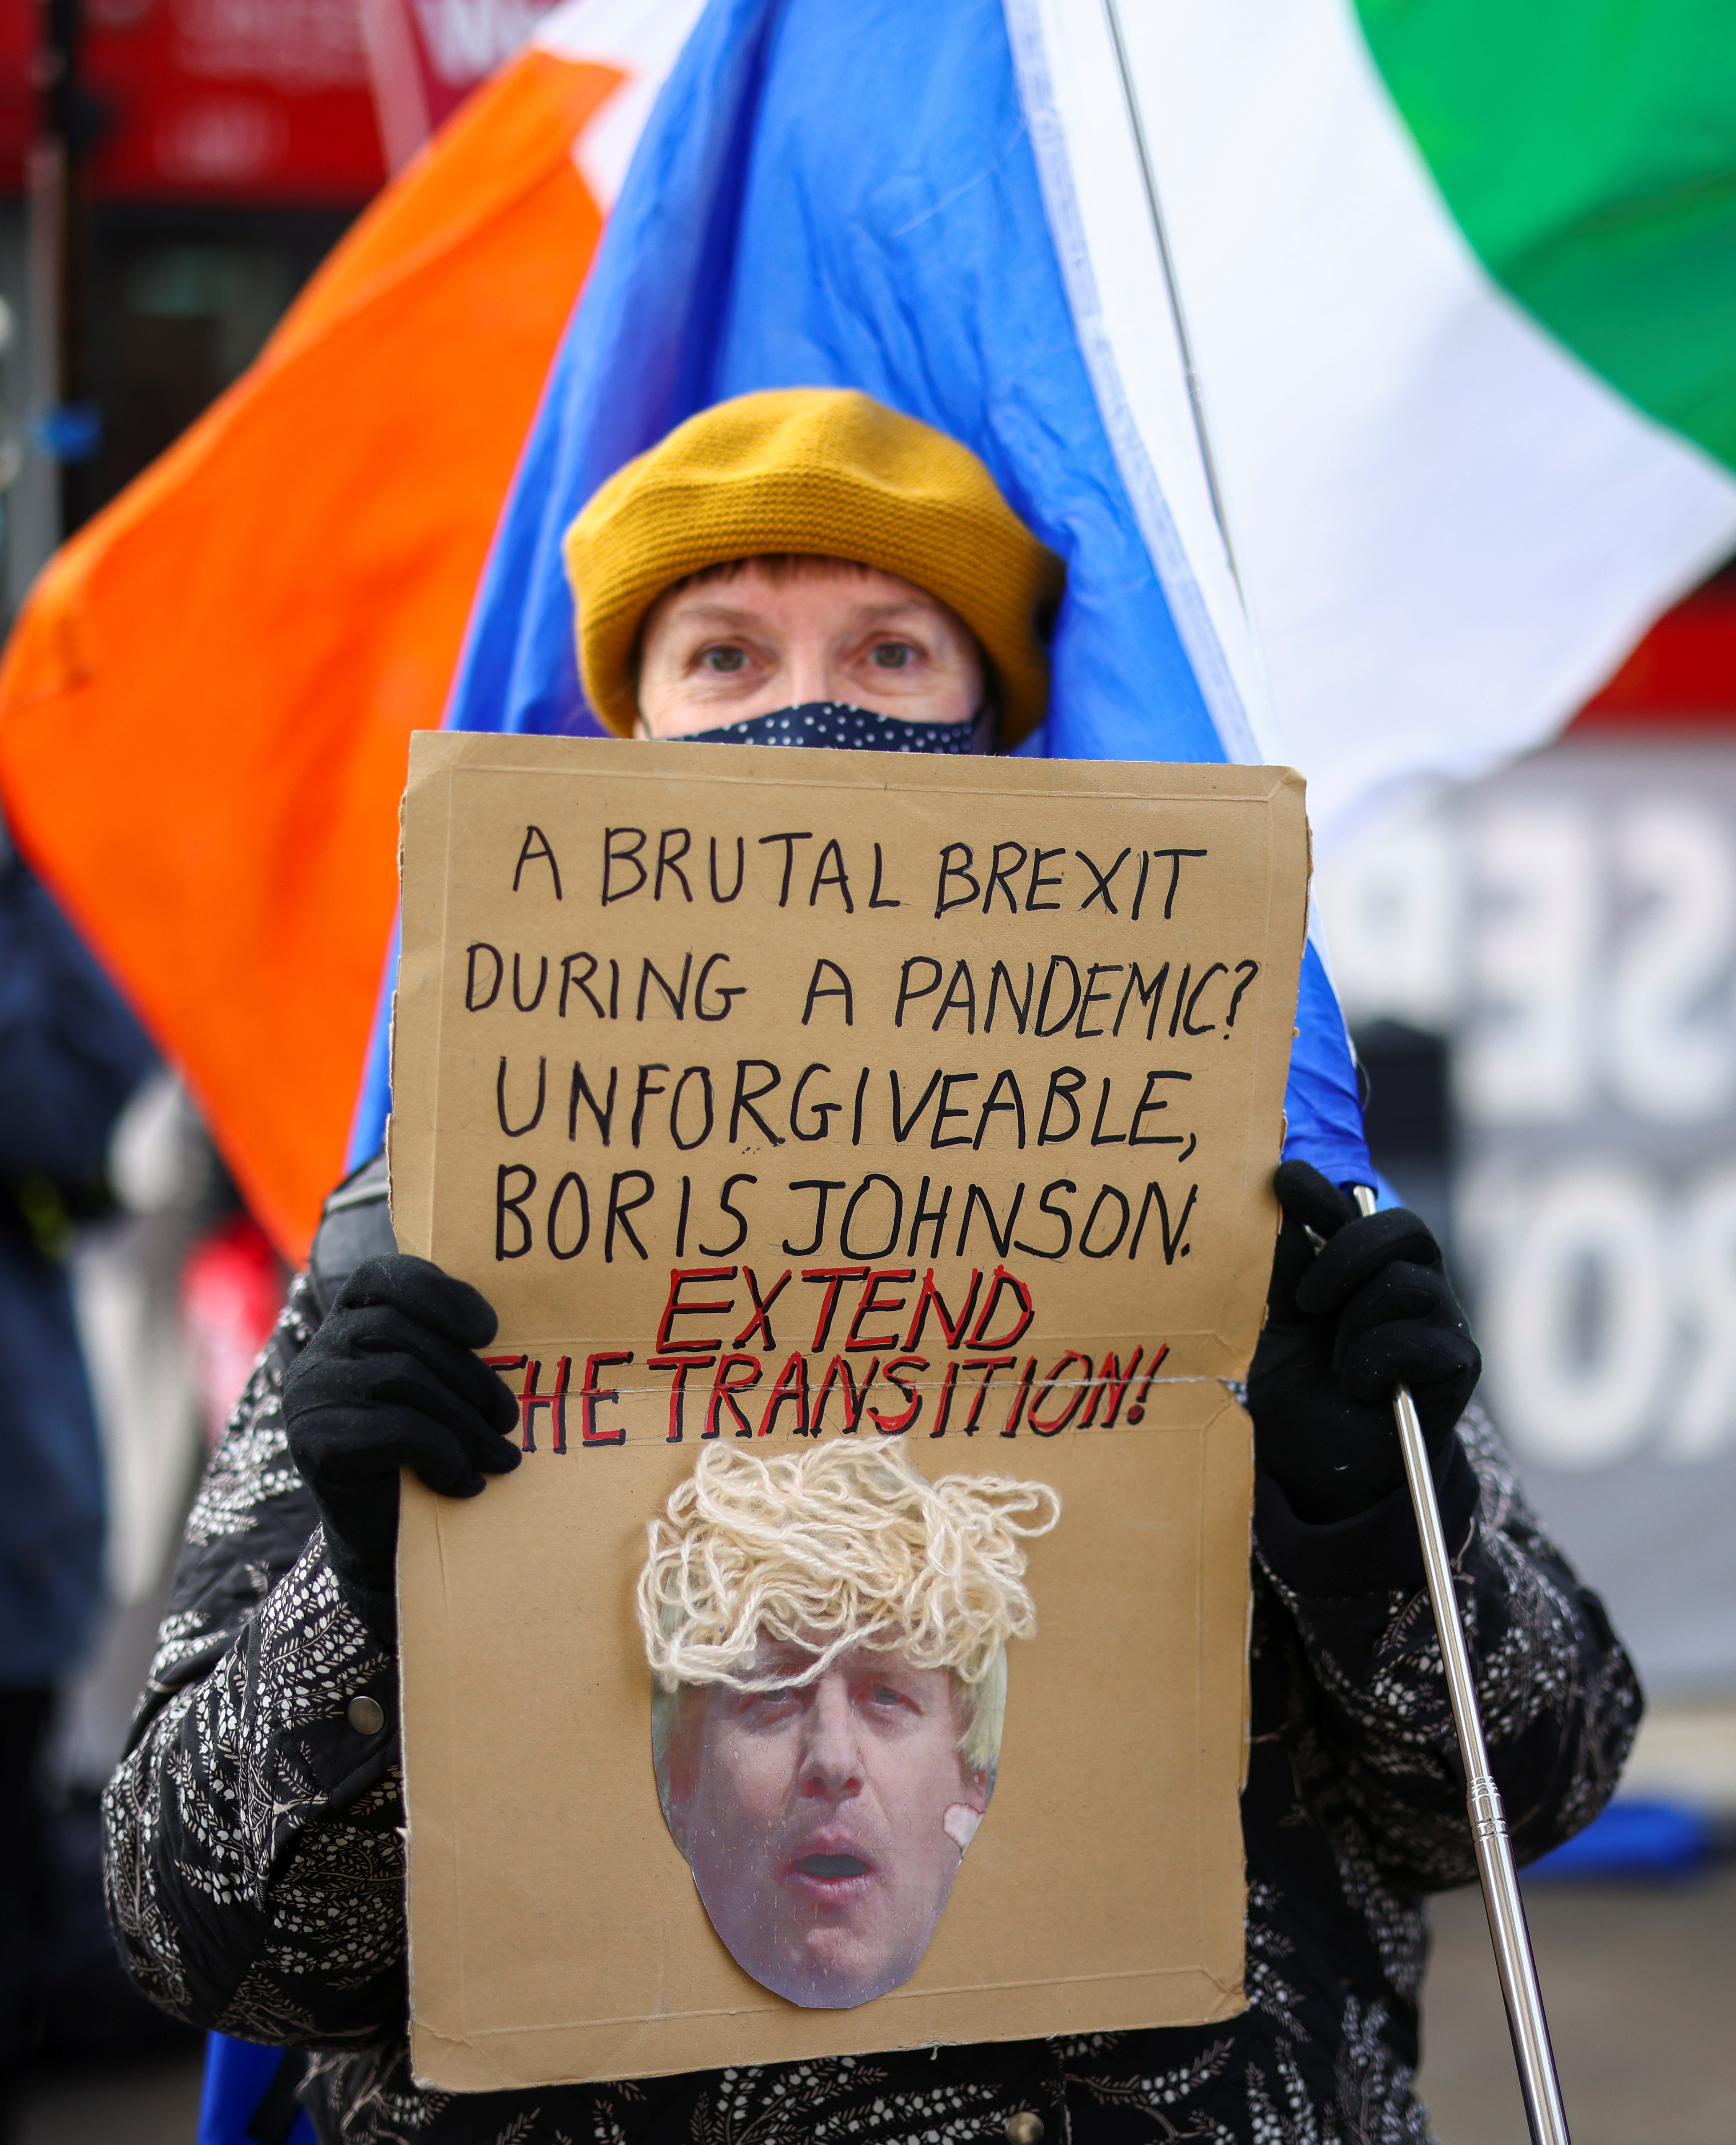 A BRUTAL BREXIT
DURING A PANDEMIC?
UNFORGIVEABLE,
BORIS JOHNSON.
EXTEND
THE TRANSITION!